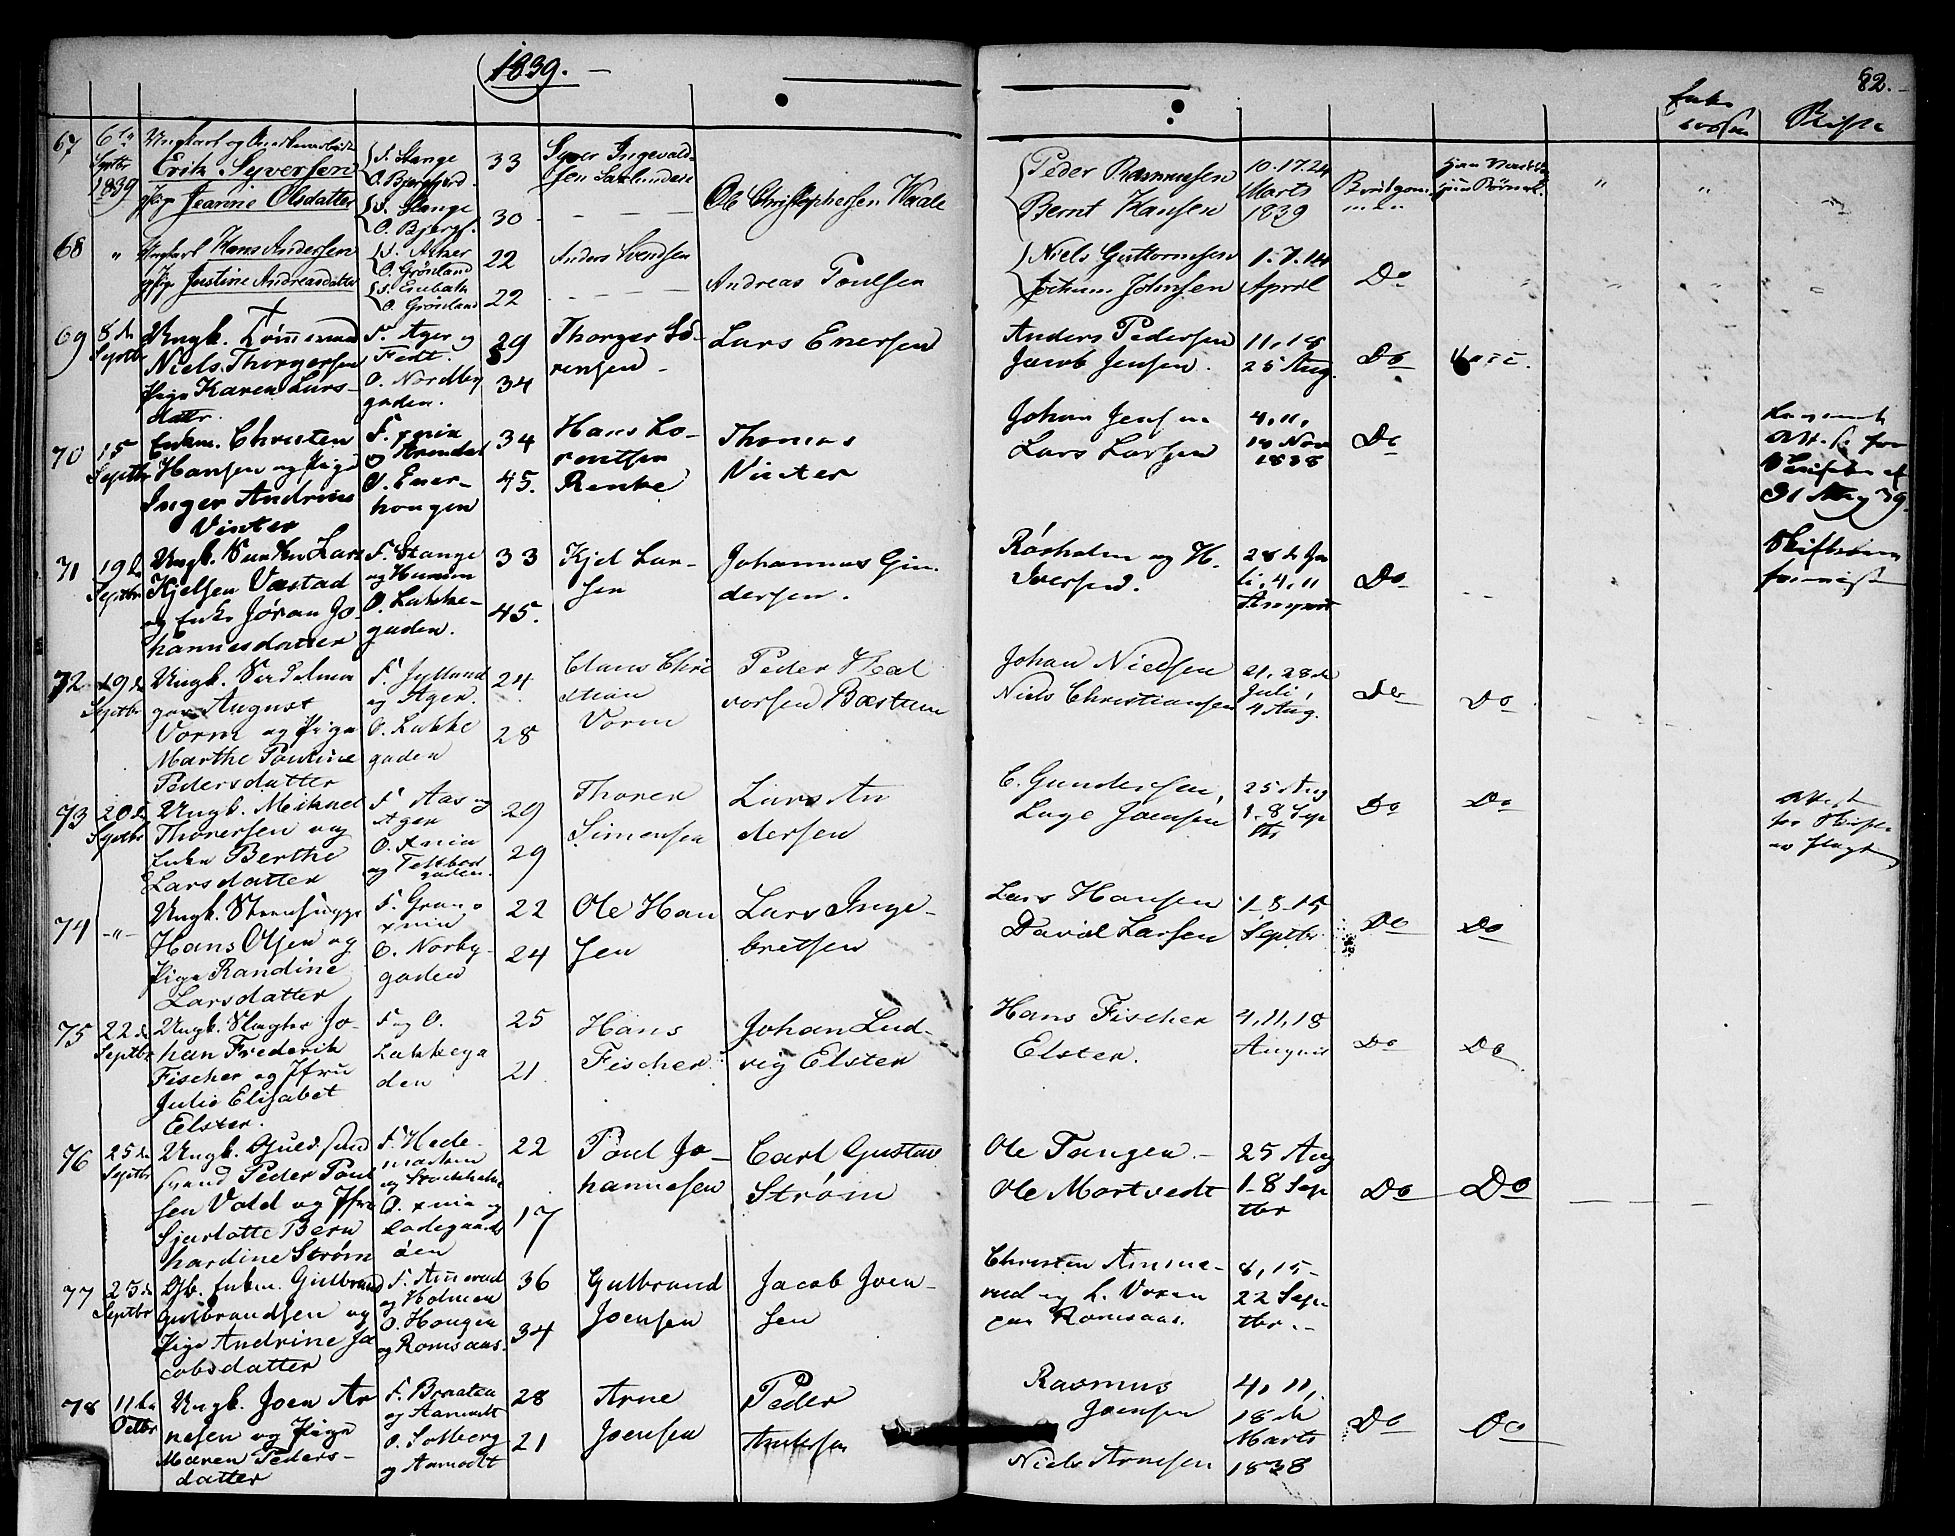 1839.
82.
67
6te
Septbr
1839
Ungkarl og
Erik Syversen
Pige Jeanine Olsdatter
F. Stange
O. Bjergsjord
F. Stange
O. Bjergs.
33
30
Syver Ingevald-
sen
Ole Christophersen Waale
Peder Rasmussen
Bernt Hansen
10. 17. 24
Marts
1839
Brudgom-
men
68
"
Ungkarl Hans Andersen
Pige Justine Andreasdatter
F. Aker
O. Grønland
F. Enebakk
O. Grønland
22
22
Anders Svendsen
Andreas Poulsen
Niels Guttormsen
Jochum Johnsen
1. 7. 14
April
Do
69
8de
Septbr
Ungk. Tømmermand
Niels Thorgersen
Pige Karen Lars-
datter.
F. Ager og
Fedt.
O. Nordby
gaden.
29
34
Thorger Sö-
rensen
Lars Enersen
Anders Pedersen
Jacob Jensen.
11, 18
25 Aug.
Do
70
15
Septbr
Enkm. Christen
Hansen og Pige
Inger Andrine
Vinter
F. xnia
og Arendal
O. Ener-
hougen
34
45.
Hans Lo-
rentsen
Renke
Thomas
Vinter
Johan Jensen
Lars Larsen
4, 11,
18 Nov
1838
Do
31 Aug 39.
71
19de
Septbr
Ungk. Lars
Kjelsen Vestad
og Enke Jøran Jo-
hannesdatter
F. Stange
og Hurum
O. Lakke-
gaden.
33
45.
Kjel Lar-
sen
Johannes Gun-
dersen.
Røsholm og H.
Iversen.
28de Ju
li, 4, 11
August
Do
Skifteren
72
19de
Septbr
Ungk. Sadelma
ger August
Vorm og Pige
Marthe Pouline
Pedersdatter
F. Jylland
og Ager.
O. Lakke
gaden
24
28
Claus Chri
stian
Vorm
Peder Hal
vorsen Bæstum
Johan Nielsen
Niels Christiansen
21, 28de
Juli,
4 Aug.
Do
Do
73
20de
Septbr
Ungk. Mikael
Thoresen og
Enke Berthe
Larsdatter
F. Aas og
Ager
O. xnia
og Teltbod
gaden.
29
29
Thorer
Simensen
Lars An
dersen
C. Gundersen,
Lage Joensen
25 Aug
1-8 Sep
tbr
Do
Do
Attest
for
74
-"-
Ungk. Steenhugger
Hans Olsen og
Pige Randine
Larsdatter
F. Gran o
xnia
O. Norby-
gaden
22
24
Ole Han
sen
Lars Inge-
bretsen
Lars Hansen
David Larsen
1-8-15
Septbr
Do
Do
75
22de
Septbr
Ungk. Slagter Jo-
han Frederik
Fischer og Jfru
Julie Elisabet
Elster.
F og O.
Lakkega
den
25
21
Hans
Fischer
Johan Lud-
vig Elster
Hans Fischer
Elster.
4, 11, 18
August
Do
Do
76
25de
Septbr
Ungk. Guldsmed
svend Peder Poul
sen Vold og Jfru
Sjarlotte Bern
hardine Strøm
F. Hede-
marken
og Stockholm
O. xnia og
Ladegaards
øen
22
17
Poul Jo-
hannesen
Carl Gustav
Strøm
Ole Tangen.-
Ole Mortvedt
25 Aug
1-8 Sep
tbr
Do
Do
77
25de
Septbr
Gb. Enkm. Gulbrand
Gulbrandsen og
Pige Andrine Ja
cobsdatter
F. Amerud
og Holmen
O. Hougen
og Romsaas.
36
34
Gulbrand
Joensen
Jacob Joen-
sen
Christen Amme-
rud og L. Voxen
paa Romsaas.
8, 15-
22 Sep-
tbr.-
78
11te
Octbr
Ungk. Joen Ar
nesen og Pige
Maren Peders-
datter
F. Braaten
og Aamodt
O. Solberg
og Aamodt
28
21
Arne
Joensen
Peder
Andersen
Rasmus
Joensen
Niels Arnesen
4, 11,
18de
Marts
1838
Do
Do